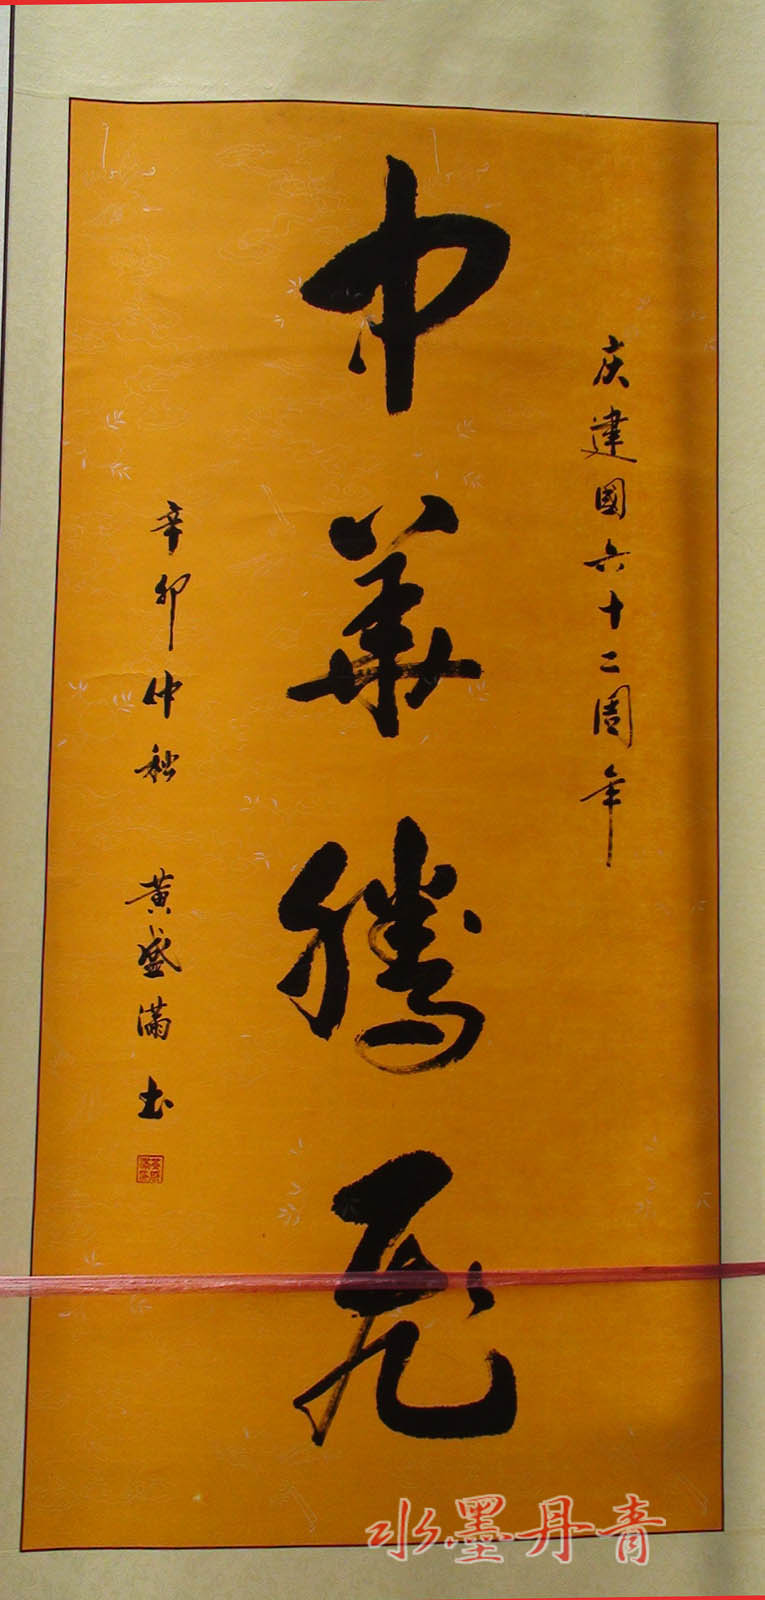 庆建國六十二周年
中華騰飛
辛卯仲秋 黄盛满书
水墨丹青